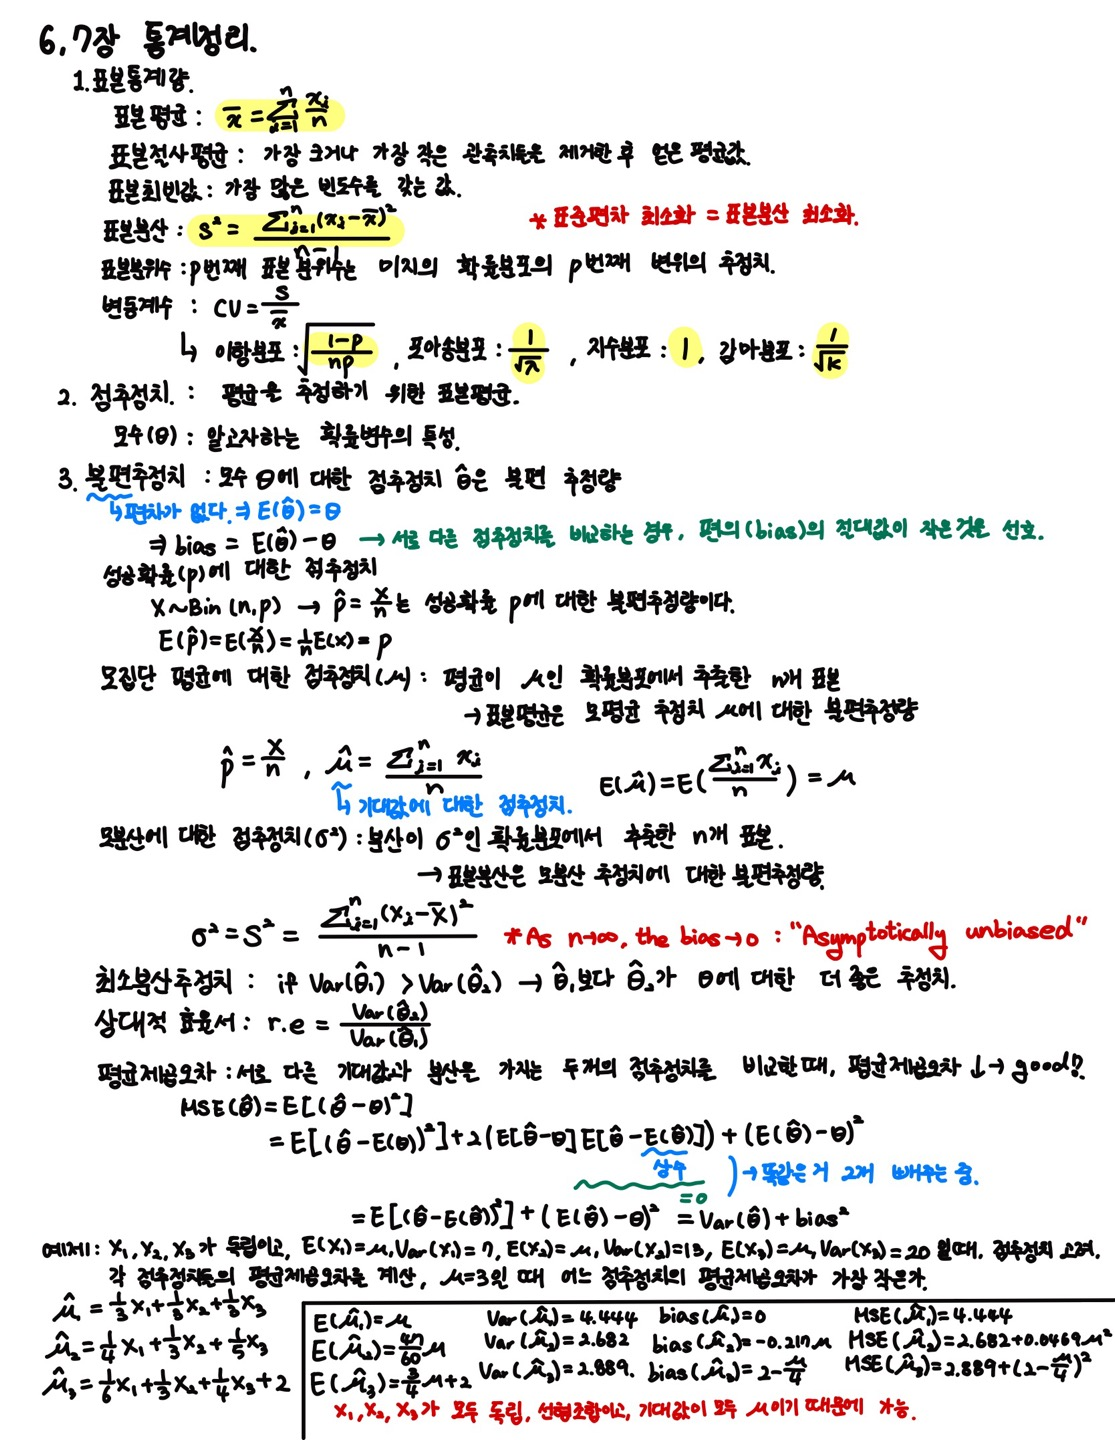 6,7장 통계정리.
1. 표본통계량.
표본평균 : x̄ = Σⁿᵢ₌₁ xᵢ/n
표본절사평균 : 가장 크거나 가장 작은 관측치들을 제거한 후 얻은 평균값.
표본최빈값 : 가장 많은 빈도수를 갖는 값.
표본분산 : S² = Σⁿᵢ₌₁(xᵢ-x̄)² / n-1
* 표준편차 최소화 = 표본분산 최소화.
표본분위수 : p번째 표본 분위수는 미지의 확률분포의 p번째 변위의 추정치.
변동계수 : CV = S/x̄
↳ 이항분포 : √((1-p)/np) , 포아송분포 : 1/√λ , 지수분포 : 1, 감마분포 : 1/√k
2. 점추정치. : 평균을 추정하기 위한 표본평균.
모수(θ) : 알고자하는 확률변수의 특성.
3. 불편추정치 : 모수 θ에 대한 점추정치 θ̂은 불편 추정량
↳ 편차가 없다. ⇒ E(θ̂) = θ
⇒ bias = E(θ̂) - θ → 서로 다른 점추정치를 비교하는 경우, 편의(bias)의 절대값이 작은것을 선호.
성공확률(p)에 대한 점추정치
X~Bin(n,p) → p̂ = X/n는 성공확률 p에 대한 불편추정량이다.
E(p̂) = E(X/n) = 1/n E(x) = p
모집단 평균에 대한 점추정치(μ) : 평균이 μ인 확률분포에서 추출한 n개 표본
→ 표본평균은 모평균 추정치 μ에 대한 불편추정량
p̂ = X/n , μ̂ = Σⁿᵢ₌₁ xᵢ / n E(μ̂) = E(Σⁿᵢ₌₁ xᵢ / n) = μ
↳ 기대값에 대한 점추정치.
모분산에 대한 점추정치(σ²) : 분산이 σ²인 확률분포에서 추출한 n개 표본.
→ 표본분산은 모분산 추정치에 대한 불편추정량.
σ² = S² = Σⁿᵢ₌₁(Xᵢ-X̄)² / n-1 * As n→∞, the bias→0 : "Asymptotically unbiased"
최소분산추정치 : if Var(θ̂₁) > Var(θ̂₂) → θ̂₁보다 θ̂₂가 θ에 대한 더 좋은 추정치.
상대적 효율서 : r.e = Var(θ̂₂) / Var(θ̂₁)
평균제곱오차 : 서로 다른 기대값과 분산을 가지는 두개의 점추정치를 비교한때, 평균제곱오차 ↓ → good?
MSE(θ̂) = E[(θ̂-θ)²]
= E[(θ̂-E(θ))²] + 2(E[θ̂-θ]E[θ̂-E(θ̂)]) + (E(θ̂)-θ)²
상수 ) → 똑같은거 2개 빼주는 중.
=0
= E[(θ̂-E(θ̂))²] + (E(θ̂)-θ)² = Var(θ̂) + bias²
예제 : X₁, X₂, X₃가 독립이고, E(X₁)=μ, Var(X₁)=7, E(X₂)=μ, Var(X₂)=13, E(X₃)=μ, Var(X₃)=20 일때, 점추정치 고려.
각 점추정치들의 평균제곱오차를 계산, μ=3일 때 어느 점추정치의 평균제곱오차가 가장 작은가.
μ̂₁ = 1/3 X₁ + 1/3 X₂ + 1/3 X₃
μ̂₂ = 1/4 X₁ + 1/3 X₂ + 1/5 X₃
μ̂₃ = 1/6 X₁ + 1/3 X₂ + 1/4 X₃ + 2
E(μ̂₁) = μ Var(μ̂₁) = 4.444 bias(μ̂₁) = 0 MSE(μ̂₁) = 4.444
E(μ̂₂) = 47/60 μ Var(μ̂₂) = 2.682 bias(μ̂₂) = -0.217μ MSE(μ̂₂) = 2.682+0.0469μ²
E(μ̂₃) = 3/4 μ+2 Var(μ̂₃) = 2.889. bias(μ̂₃) = 2-μ/4 MSE(μ̂₃) = 2.889+(2-μ/4)²
X₁, X₂, X₃가 모두 독립, 선형조합이고, 기대값이 모두 μ이기 때문에 가능.